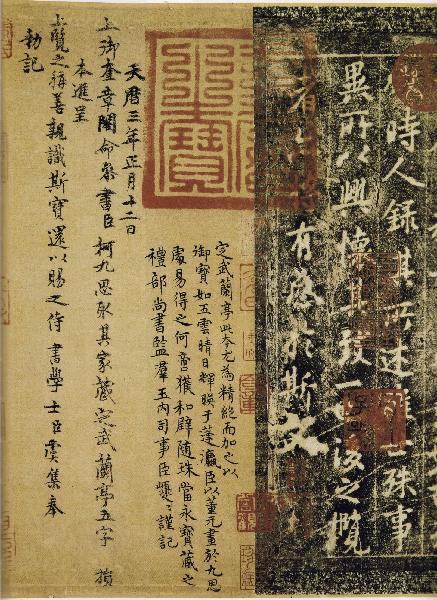 時人錄其所述雖世殊事
異所以興懷其致一也後之攬
者 有感於斯文
定武蘭亭此本尤為精絕而加之以
御寶如五雲晴日輝暎于蓬瀛臣以董元畫於九思
處易得之何啻獲和璧隨珠當永寶藏之
禮部尚書監羣玉內司事臣巙巙謹記
天曆三年正月十二日
上御奎章閣命參書臣柯九思取其家藏定武蘭亭五字損
本進呈
上覽之稱善親識斯寶還以賜之侍書學士臣虞集奉
勑記